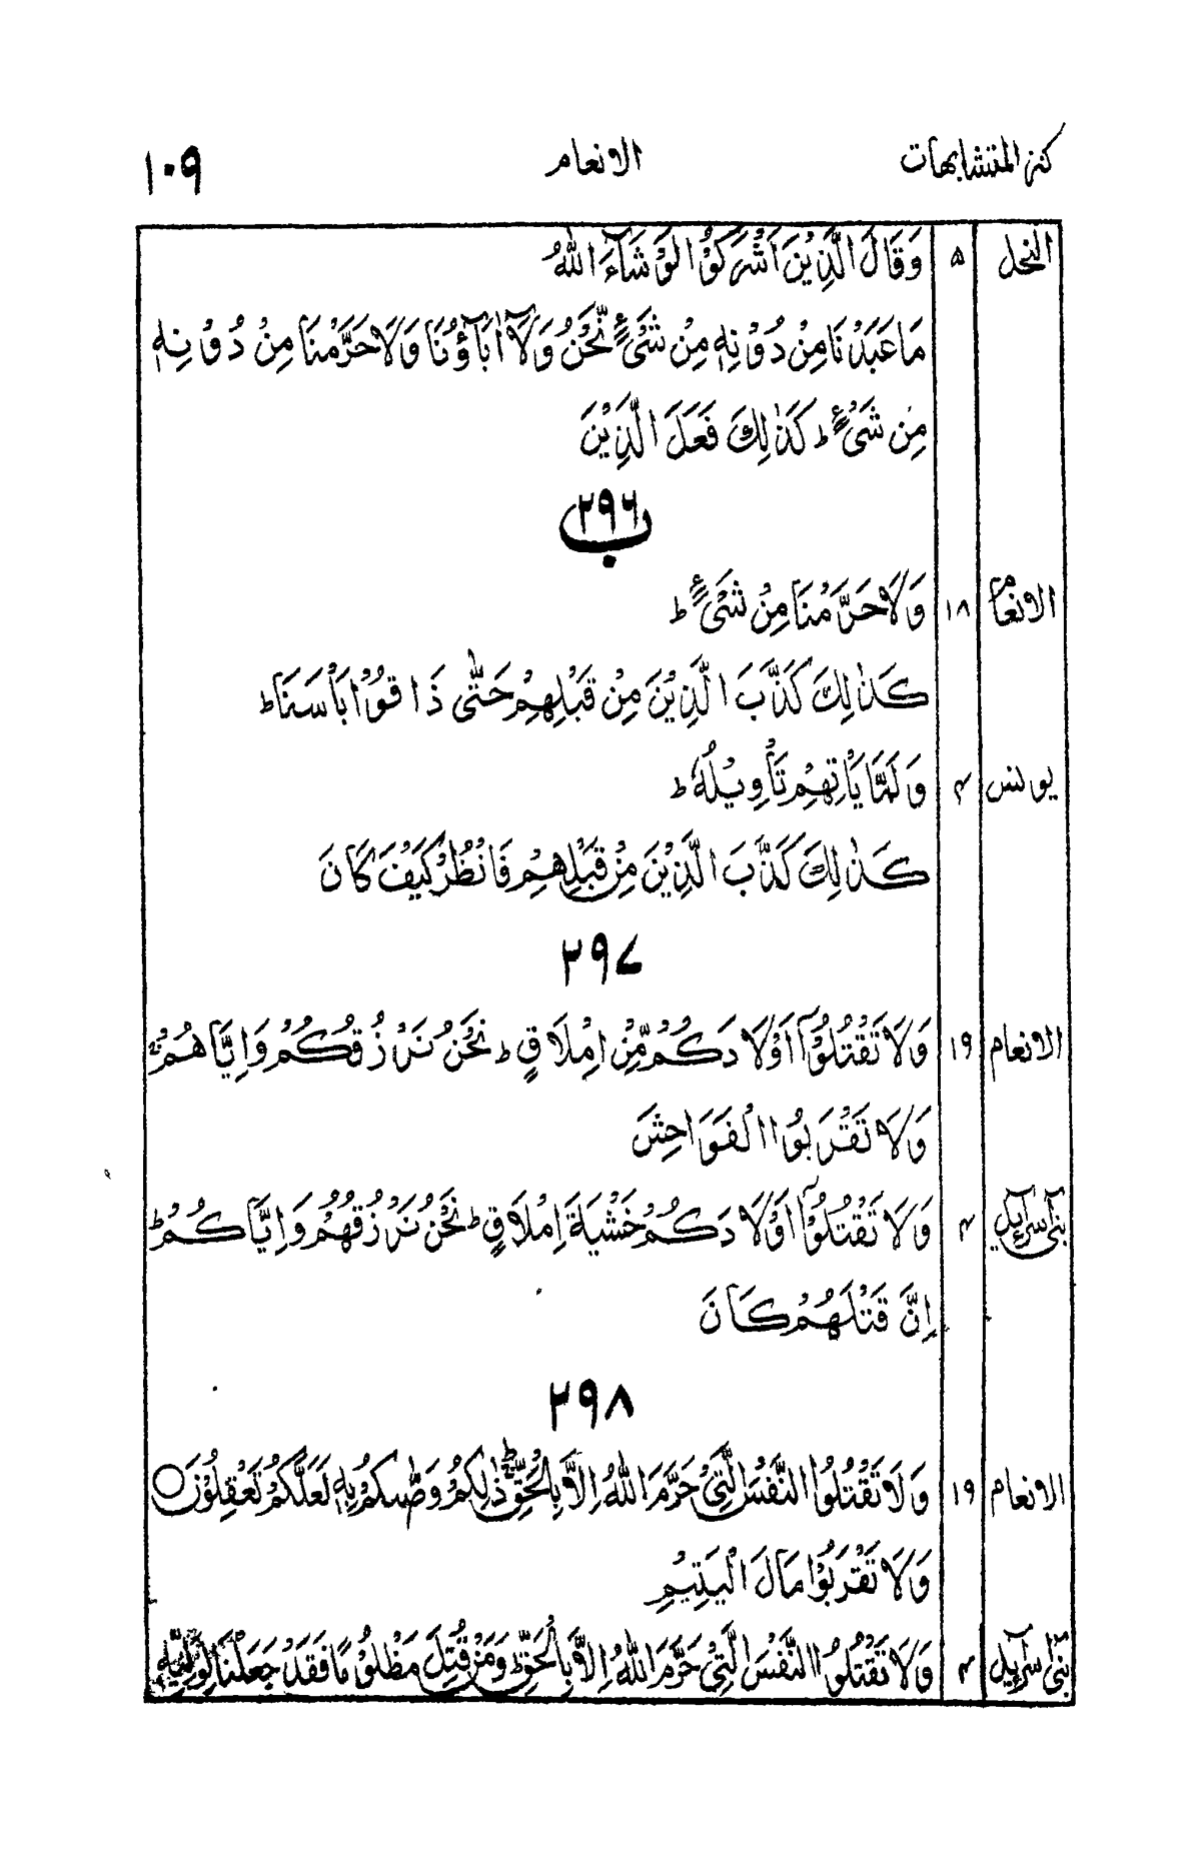 كنز المتشابهات الانعام ١٠٩
النحل ٥ وَقَالَ الَّذِيْنَ اَشْرَكُوْا لَوْ شَآءَ اللّٰهُ
مَا عَبَدْنَا مِنْ دُوْنِهٖ مِنْ شَىْءٍ نَّحْنُ وَلَآ اٰبَآؤُنَا وَلَا حَرَّمْنَا مِنْ دُوْنِهٖ
مِنْ شَىْءٍ ؕ كَذٰلِكَ فَعَلَ الَّذِيْنَ
٢٩٦
ب
الانعام ١٨ وَلَا حَرَّمْنَا مِنْ شَىْءٍ ؕ
كَذٰلِكَ كَذَّبَ الَّذِيْنَ مِنْ قَبْلِهِمْ حَتّٰى ذَاقُوْا بَاْسَنَا ؕ
يونس ٤ وَلَمَّا يَاْتِهِمْ تَاْوِيْلُهٗ ؕ
كَذٰلِكَ كَذَّبَ الَّذِيْنَ مِنْ قَبْلِهِمْ فَانْظُرْ كَيْفَ كَانَ
٢٩٧
الانعام ١٩ وَلَا تَقْتُلُوْٓا اَوْلَادَكُمْ مِّنْ اِمْلَاقٍ ؕ نَحْنُ نَرْزُقُكُمْ وَاِيَّاهُمْ ۚ
وَلَا تَقْرَبُوا الْفَوَاحِشَ
بنىٓ اسرآءيل ٤ وَلَا تَقْتُلُوْٓا اَوْلَادَكُمْ خَشْيَةَ اِمْلَاقٍ ؕ نَحْنُ نَرْزُقُهُمْ وَاِيَّاكُمْ ؕ
اِنَّ قَتْلَهُمْ كَانَ
٢٩٨
الانعام ١٩ وَلَا تَقْتُلُوا النَّفْسَ الَّتِىْ حَرَّمَ اللّٰهُ اِلَّا بِالْحَقِّ ؕ ذٰلِكُمْ وَصّٰىكُمْ بِهٖ لَعَلَّكُمْ تَعْقِلُوْنَ ○
وَلَا تَقْرَبُوْا مَالَ الْيَتِيْمِ
بنىٓ اسرآءيل ٤ وَلَا تَقْتُلُوا النَّفْسَ الَّتِىْ حَرَّمَ اللّٰهُ اِلَّا بِالْحَقِّ ؕ وَمَنْ قُتِلَ مَظْلُوْمًا فَقَدْ جَعَلْنَا لِوَلِيِّهٖ